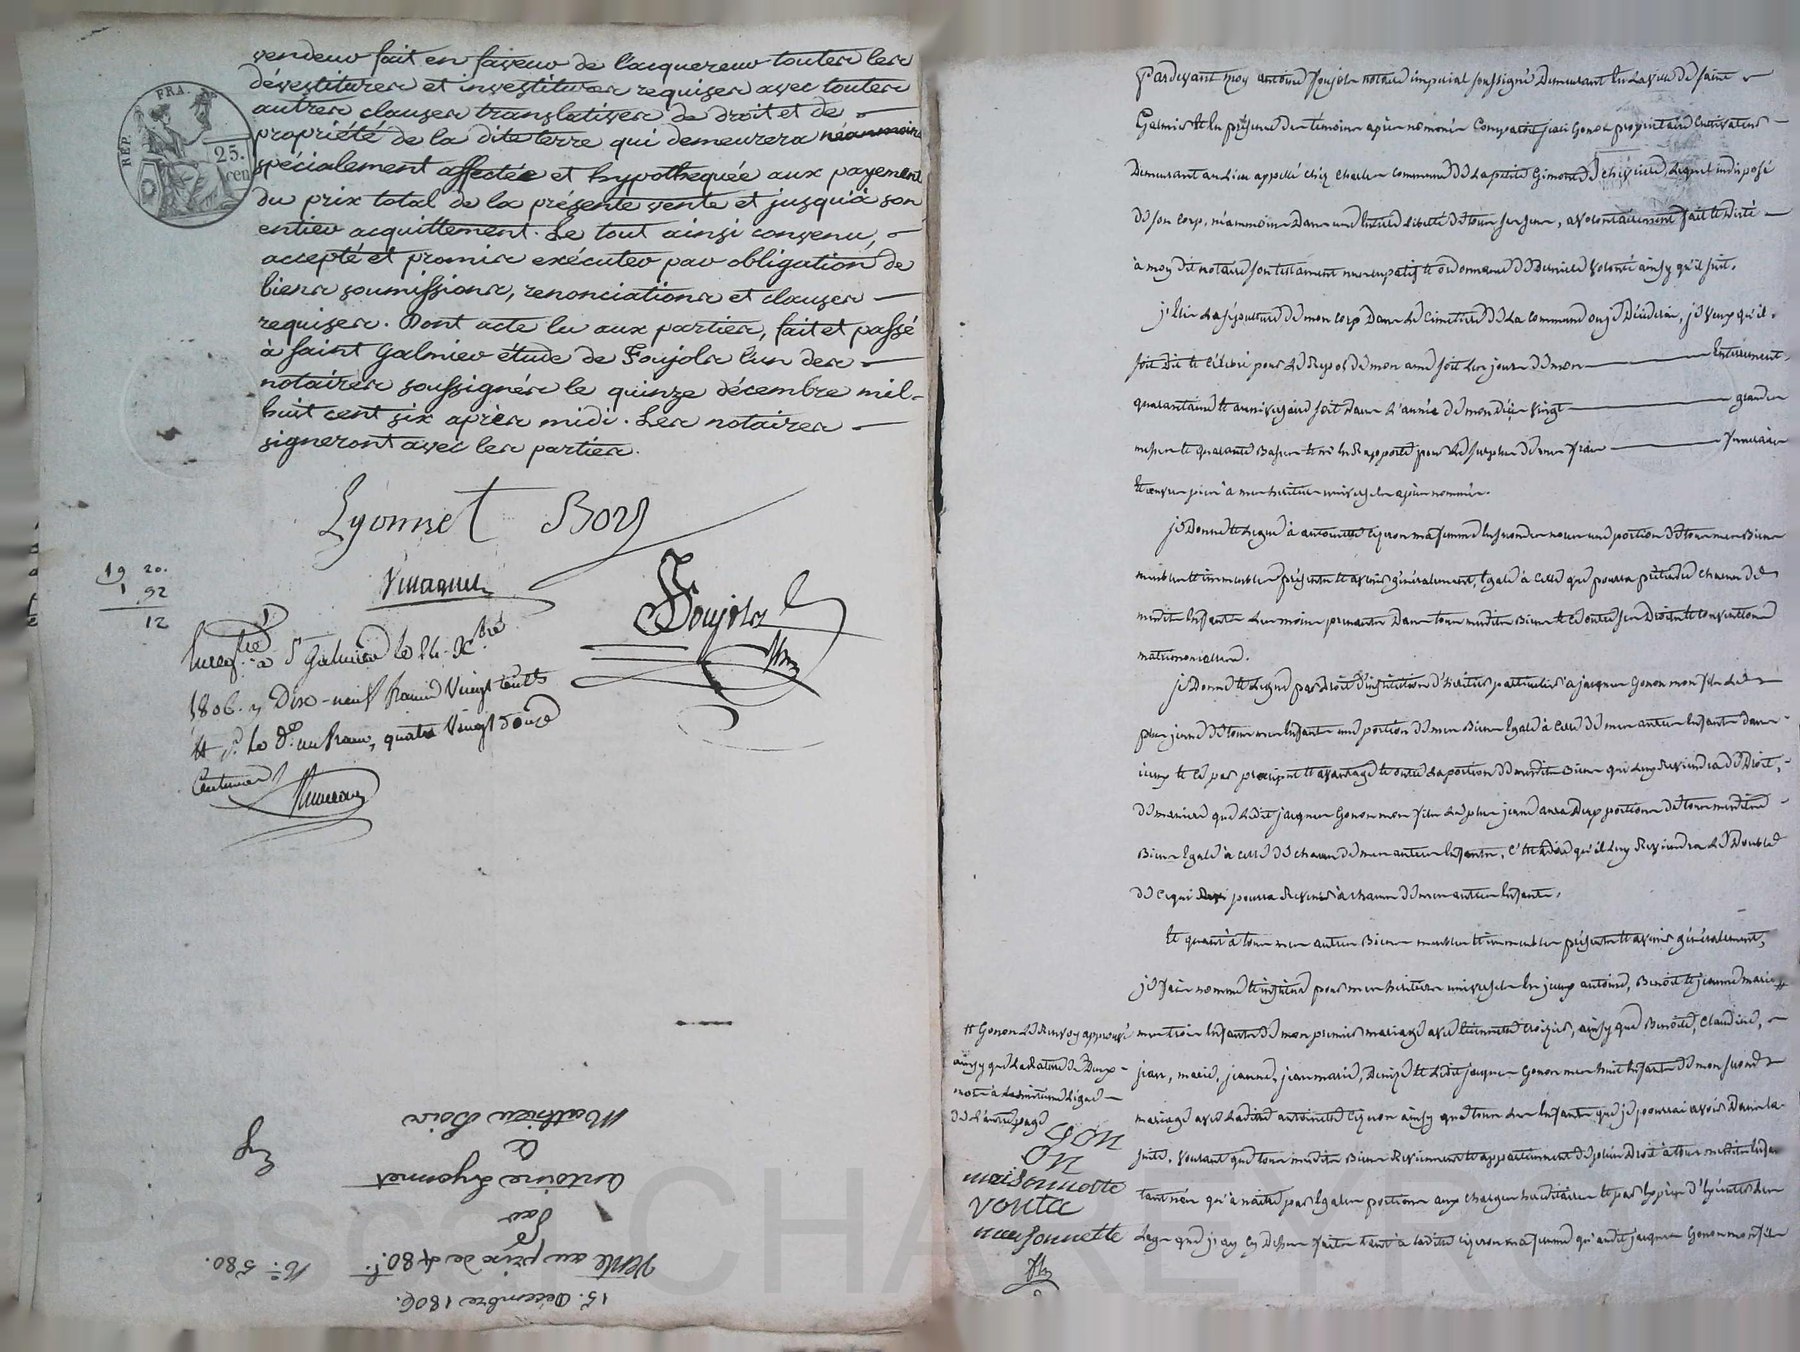 REP. FRA.
25. cen
vendeur fait en faveur de l'acquereur toutes les
dévestitures et investitures requises avec toutes
autres clauses translatives de droit et de
propriété de la dite terre qui demeurera néanmoins
spécialement affectée et hypothequée aux payement
du prix total de la présente vente et jusqu'à son
entier acquittement. Le tout ainsi convenu,
accepté et promis exécuter par obligation de
biens soumissions, renonciations et clauses
requises. Dont acte lu aux parties, fait et passé
à Saint Galmier étude de Foujols l'un des
notaires soussignés le quinze décembre mil
huit cent six après midi. Les notaires
signeront avec les parties.
Lyonnet Bory
Foujols
19 20.
1 92
12
Enregtré à St Galmier le 24 Xbre
1806. Dix-neuf francs vingt cents
un franc, quatre vingt douze
Centimes
15. Décembre 1806.
Vente au prix de 480 f. N° 580.
Par
Antoine Lyonnet
à
Mathieu Boir
Pardevant moy antoine Foujols notaire imperial soussigné Demeurant en la ville de saint
Galmier et en présence des temoins après nommés Comparoit jean Gonon proprietaire Cultivateur
Demeurant au Lieu appellé chez charles commune de La petite Gimond Lequel indisposé
de son Corp, neammoins Dans une Entiere Liberté de tous ses sens, a volontairement fait et Dicté
à moy dit notaire son testament nuncupatif et ordonnance de Derniere volonté ainsy qu'il suit.
j'Elis La sépulture de mon corp Dans Le Cimetiere de La Commune ou je Déciderai, je veux qu'il
soit Dit et Célébré pour Le Repos de mon ame soit Les jours de mon Enterrement,
quarantaine et anniversaire soit Dans L'année de mon Décès vingt grandes
messes et quarante Basses et m'en Rapporte pour Le surplus de mes frais funeraires
et œuvres pies à mes heritiers universels après nommés.
je Donne et Legue à antoinette ma femme En secondes noces une portion de tous mes Biens
meubles et immeubles présents et avenir généralement, Egale à Celle que pourra prétendre chacun de
mesdits Enfants Les moins prenants Dans tous mesdits Biens et ce outre ses Droits et Conventions
matrimoniales.
je Donne et Legue par Droit d'institution d'heritier particulier à jacques Gonon mon fils Le
plus jeune de tous mes Enfants une portion de mes Biens Egale à Celle de mes autres Enfants dans
iceux et ce par preciput et avantage et outre La portion de mesdits Biens qui Luy Reviendra de Droit,
de maniere que Ledit jacques Gonon mon fils Le plus jeune aura Deux portions de tous mesdits
Biens Egale à Celle de chacun de mes autres Enfants, C'est à dire qu'il Luy Reviendra Le Double
de Ce qui pourra Revenir à chacun de mes autres Enfants.
Et quant à tous mes autres Biens meubles et immeubles présents et avenir généralement,
je fais nomme et institue pour mes heritiers universels En iceux antoine, Benoit et jeanne marie #
mes trois Enfants de mon premier mariage avec Etiennette Croizier, ainsy que Benoite, Claudine,
jean, marie, jeanne, jean marie, Denize et Ledit jacques Gonon mes huit Enfants de mon second
mariage avec Ladite antoinette ainsy que tous Les Enfants que je pourrai avoir Dans la
suite. voulant que tous mesdits Biens Reviennent et appartiennent de plein Droit à tous mesdits Enfans
tant nés qu'à naitre par Egales portions aux charges hereditaires et par Exprès d'Executer Les
Legs que j'ay cy Dessus faits tant à Ladite ma femme qu'audit jacques Gonon mon fils
# Gonon Le Renvoy approuvé
ainsy que La Rature de Deux
mots à La Ligne
de L'autre page
GON
ON
maisonnette
vonta
maisonnette
Pascal CHAREYRON